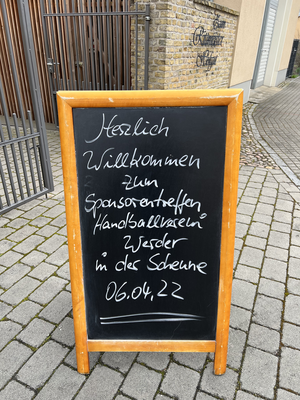 Herzlich
Willkommen
zum
Sponsorentreffen
Handballverein
Werder
in der Scheune
06.04.22